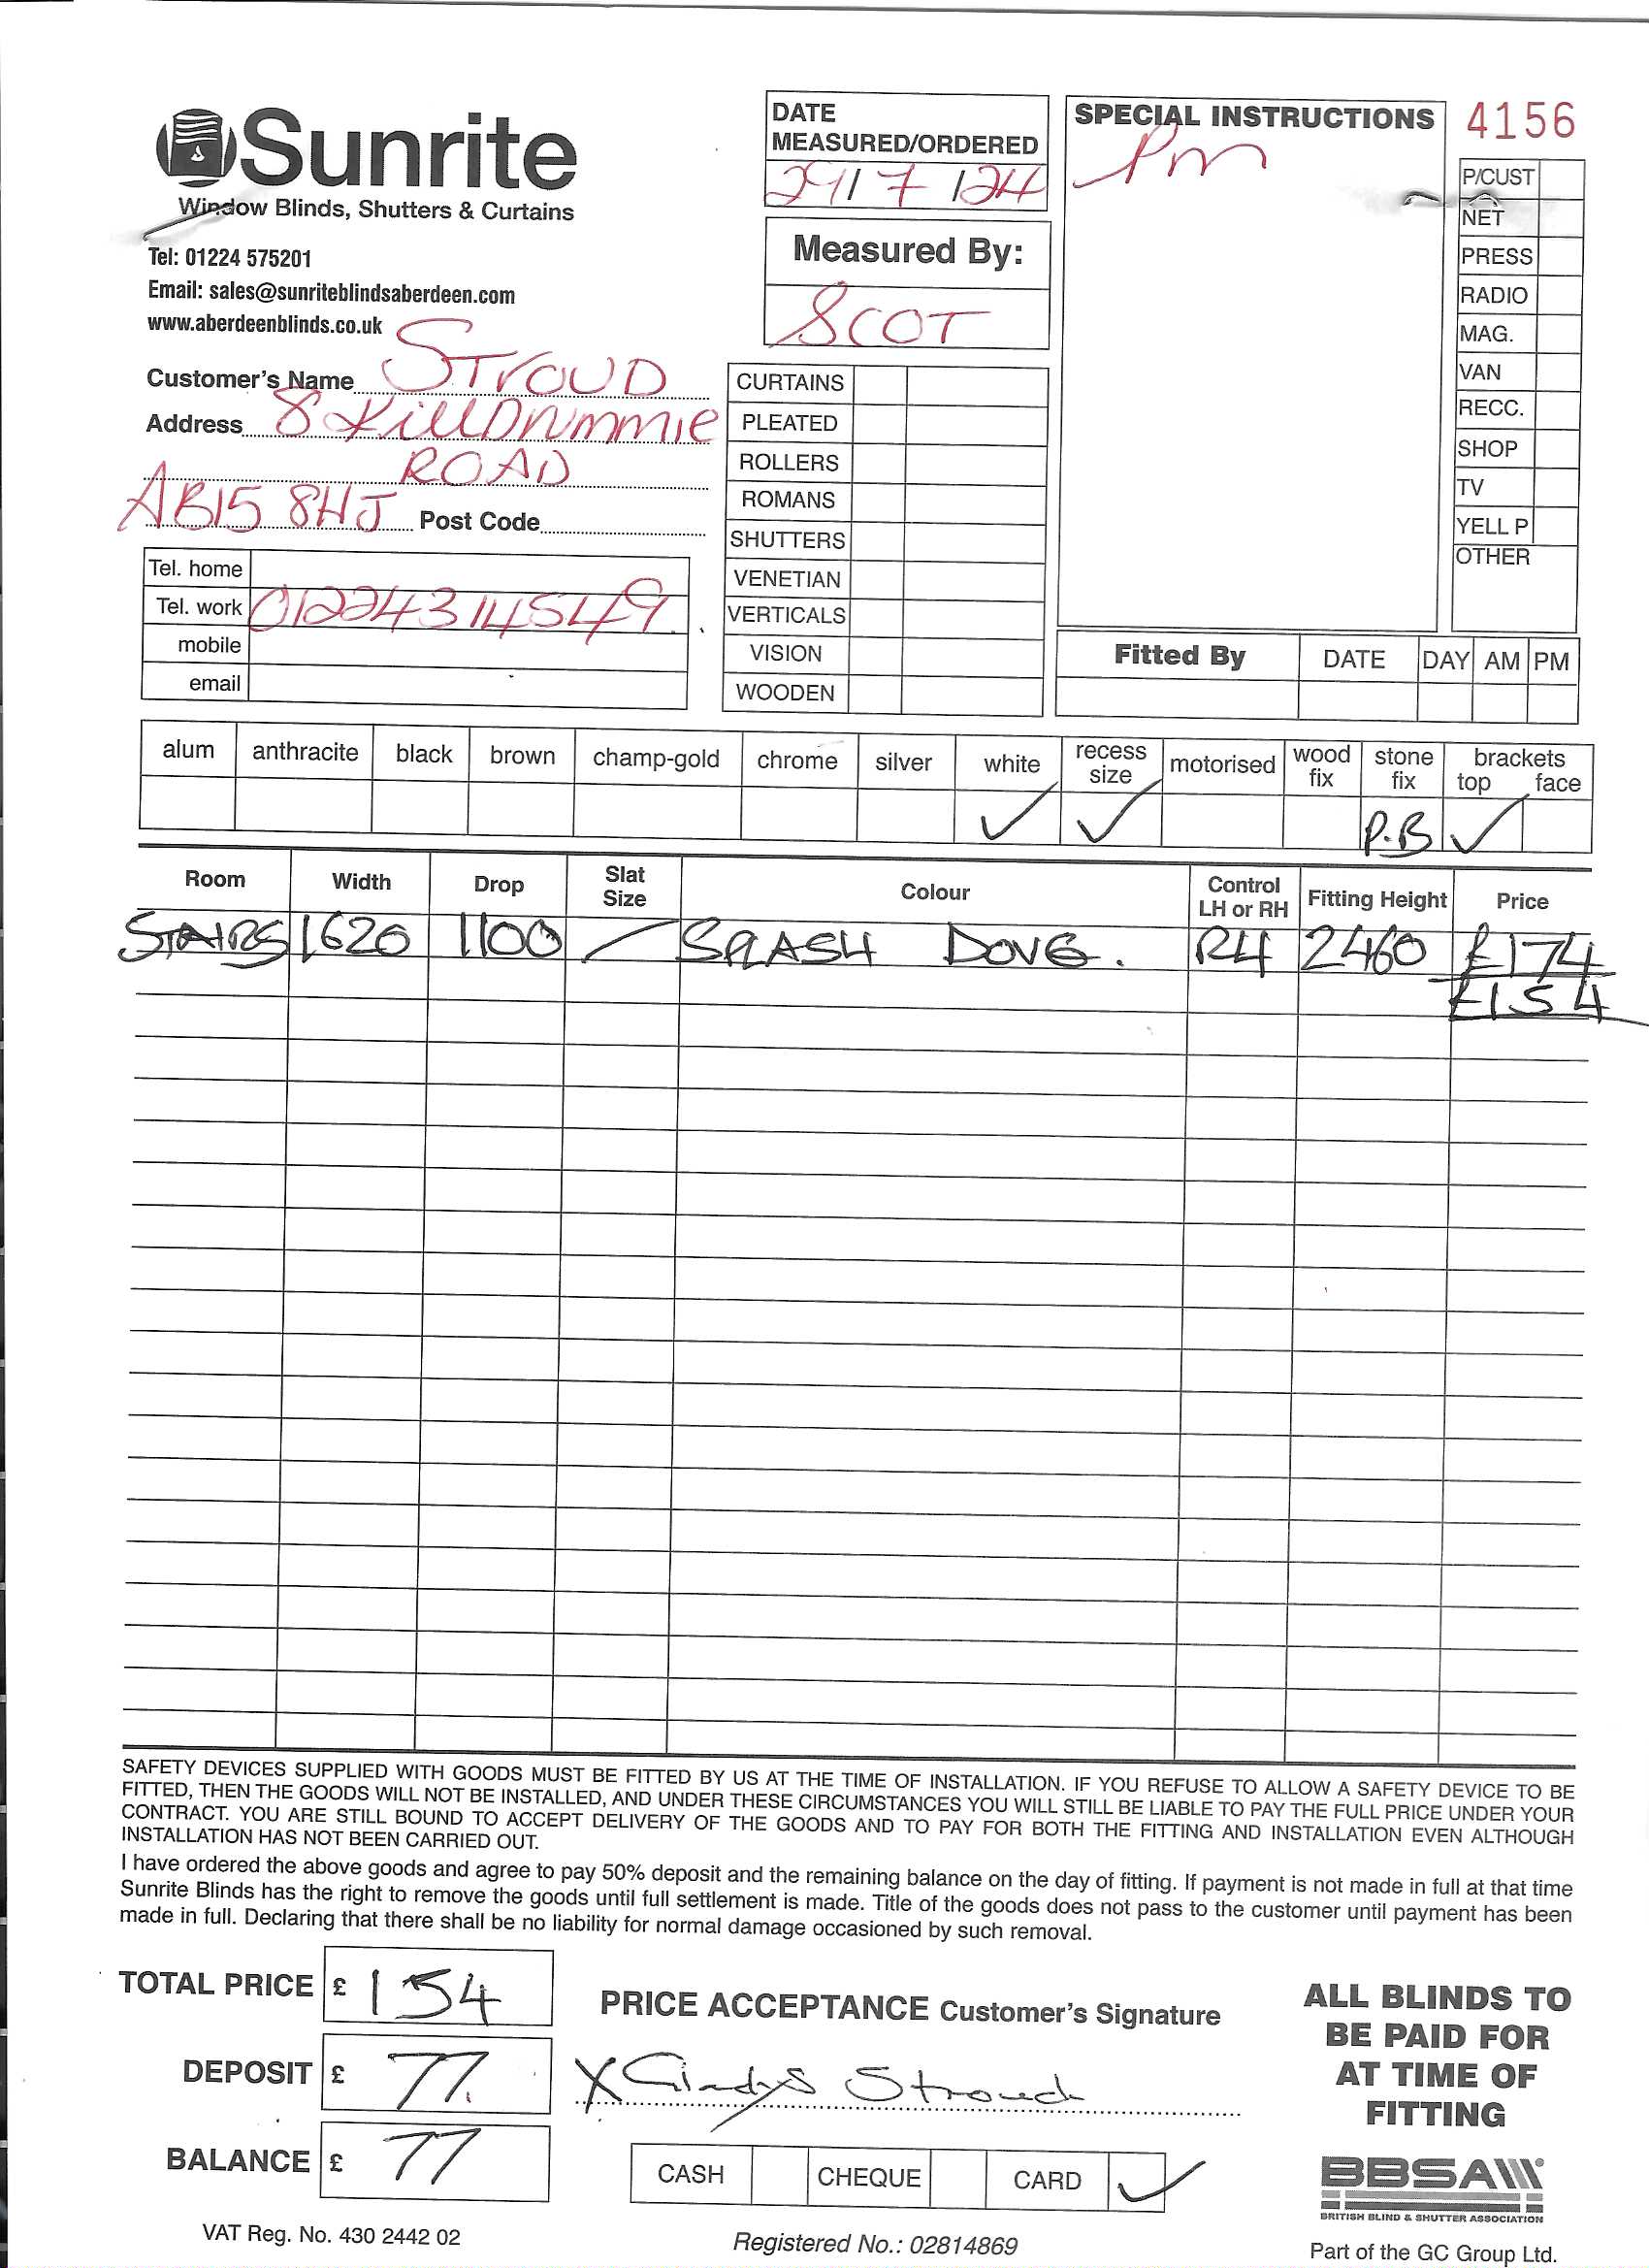 Sunrite
Window Blinds, Shutters & Curtains
Tel: 01224 575201
Email: sales@sunriteblindsaberdeen.com
www.aberdeenblinds.co.uk
DATE
MEASURED/ORDERED
29/7/24
Measured By:
SCOT
SPECIAL INSTRUCTIONS
PM
4156
P/CUST
NET
PRESS
RADIO
MAG.
VAN
RECC.
SHOP
TV
YELL P
OTHER
Customer's Name STROUD
Address 8 KILLDRUMMIE
ROAD
AB15 8HJ Post Code
Tel. home
Tel. work 01224314549
mobile
email
CURTAINS
PLEATED
ROLLERS
ROMANS
SHUTTERS
VENETIAN
VERTICALS
VISION
WOODEN
Fitted By DATE DAY AM PM
alum anthracite black brown champ-gold chrome silver white recess size motorised wood fix stone fix brackets top face
✓ ✓ P.B ✓
Room Width Drop Slat Size Colour Control LH or RH Fitting Height Price
STAIRS 1620 1100 / SPLASH DOVE. RH 2460 £174
£154
SAFETY DEVICES SUPPLIED WITH GOODS MUST BE FITTED BY US AT THE TIME OF INSTALLATION. IF YOU REFUSE TO ALLOW A SAFETY DEVICE TO BE
FITTED, THEN THE GOODS WILL NOT BE INSTALLED, AND UNDER THESE CIRCUMSTANCES YOU WILL STILL BE LIABLE TO PAY THE FULL PRICE UNDER YOUR
CONTRACT. YOU ARE STILL BOUND TO ACCEPT DELIVERY OF THE GOODS AND TO PAY FOR BOTH THE FITTING AND INSTALLATION EVEN ALTHOUGH
INSTALLATION HAS NOT BEEN CARRIED OUT.
I have ordered the above goods and agree to pay 50% deposit and the remaining balance on the day of fitting. If payment is not made in full at that time
Sunrite Blinds has the right to remove the goods until full settlement is made. Title of the goods does not pass to the customer until payment has been
made in full. Declaring that there shall be no liability for normal damage occasioned by such removal.
TOTAL PRICE £ 154
DEPOSIT £ 77.
BALANCE £ 77
PRICE ACCEPTANCE Customer's Signature
X Gladys Stroud
CASH CHEQUE CARD ✓
ALL BLINDS TO
BE PAID FOR
AT TIME OF
FITTING
BBSA
BRITISH BLIND & SHUTTER ASSOCIATION
VAT Reg. No. 430 2442 02
Registered No.: 02814869
Part of the GC Group Ltd.